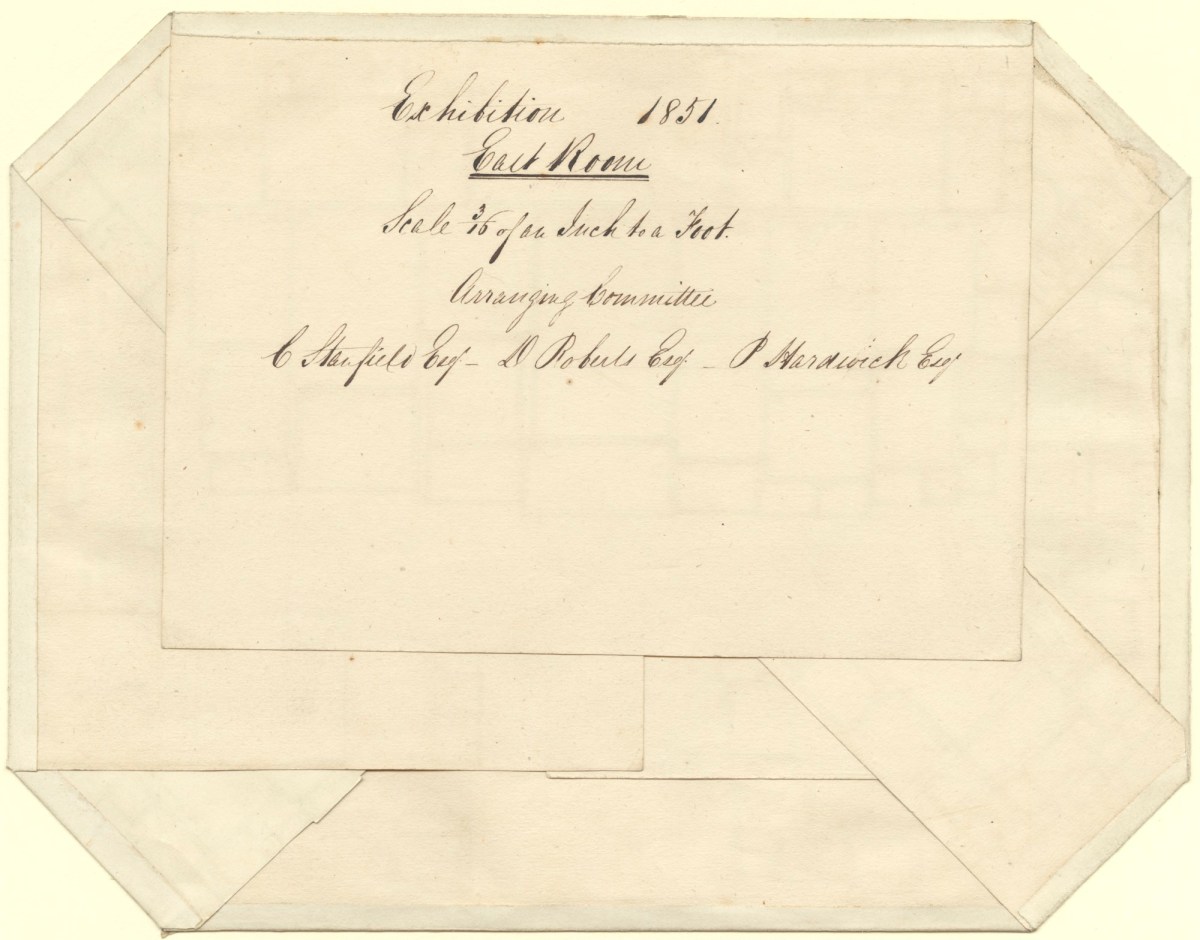 Exhibition 1851.
East Room
Scale 3/16 of an Inch to a Foot.
Arranging Committee
C Stanfield Esq – D Roberts Esq – P Hardwick Esq